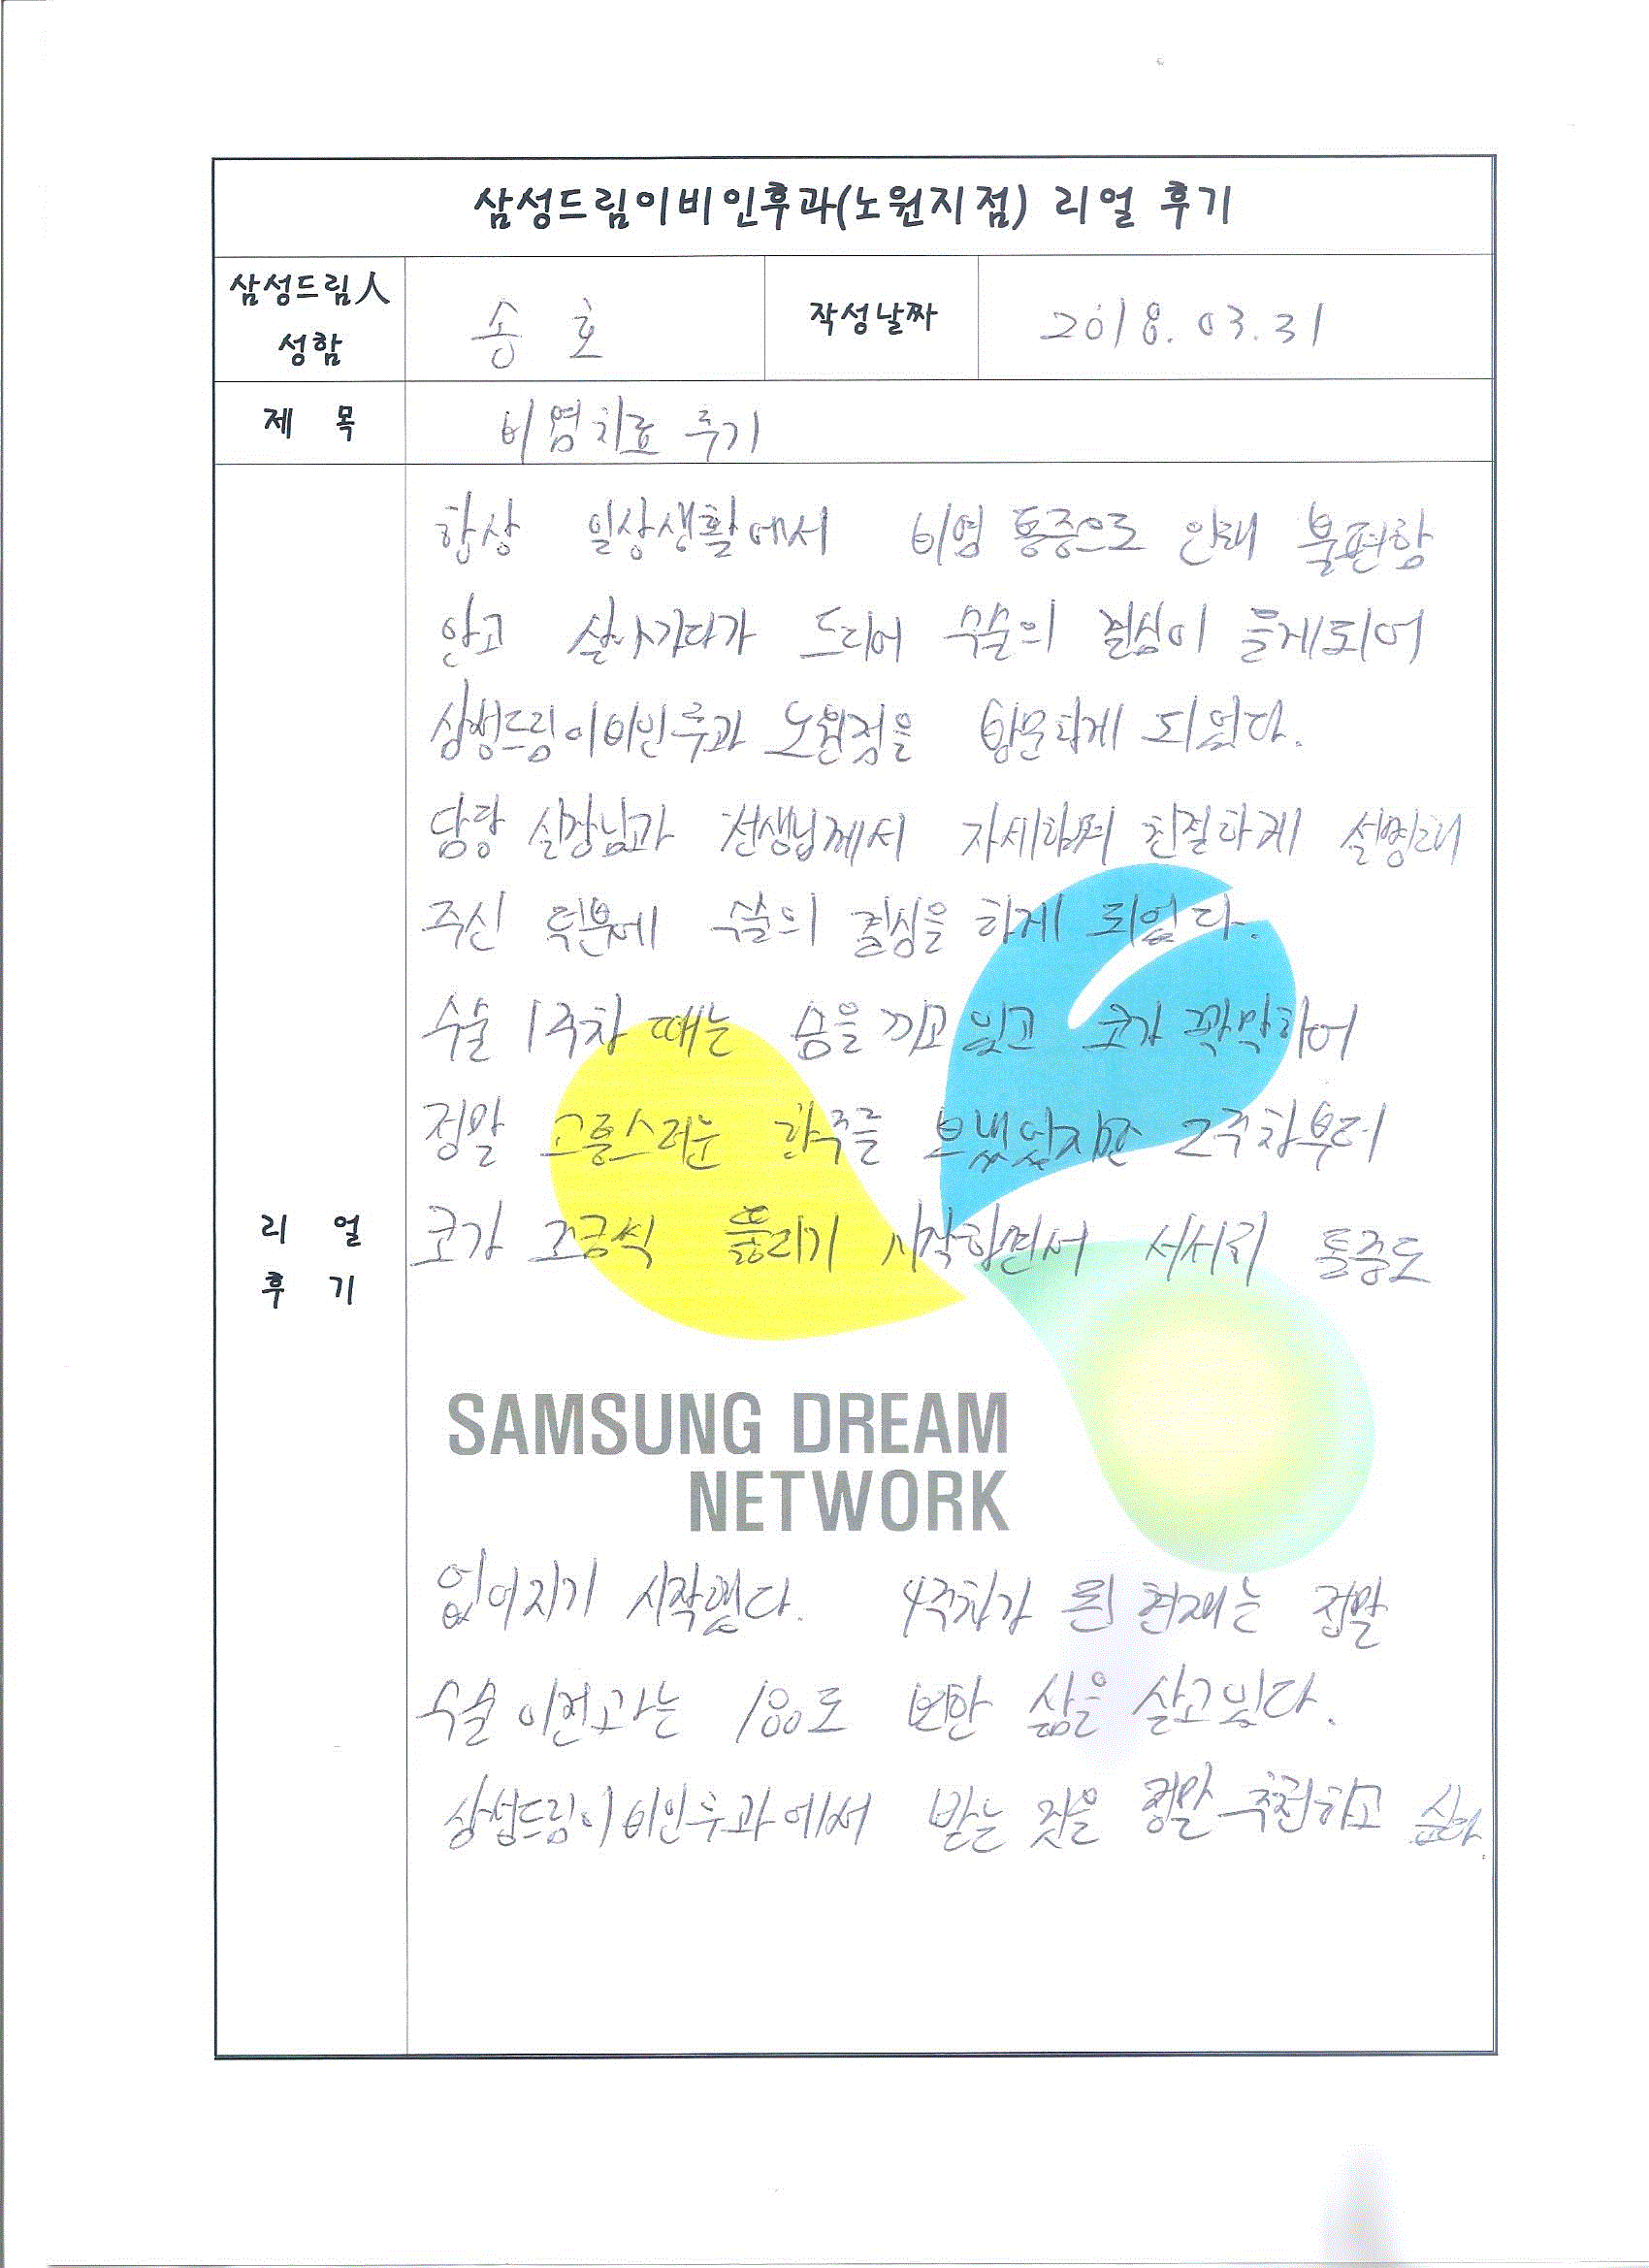 삼성드림이비인후과(노원지점) 리얼 후기
삼성드림人
성함
송 호
작성날짜
2018. 03. 31
제 목
비염치료 후기
항상 일상생활에서 비염 통증으로 인해 불편함
안고 살아가다가 드디어 수술의 결심이 들게되어
삼성드림이비인후과 노원점을 방문하게 되었다.
담당 실장님과 선생님께서 자세하며 친절하게 설명해
주신 덕분에 수술의 결심을 하게 되었다.
수술 1주차 때는 솜을 끼고 있고 코가 꽉막히어
정말 고통스러운 한주를 보냈었지만 2주차부터
리 얼
후 기
코가 조금씩 뚫리기 시작하면서 서서히 통증도
SAMSUNG DREAM
NETWORK
없어지기 시작했다. 4주차가 된 현재는 정말
수술 이전과는 180도 변한 삶을 살고있다.
삼성드림이비인후과에서 받는 것을 정말 추천하고 싶다.